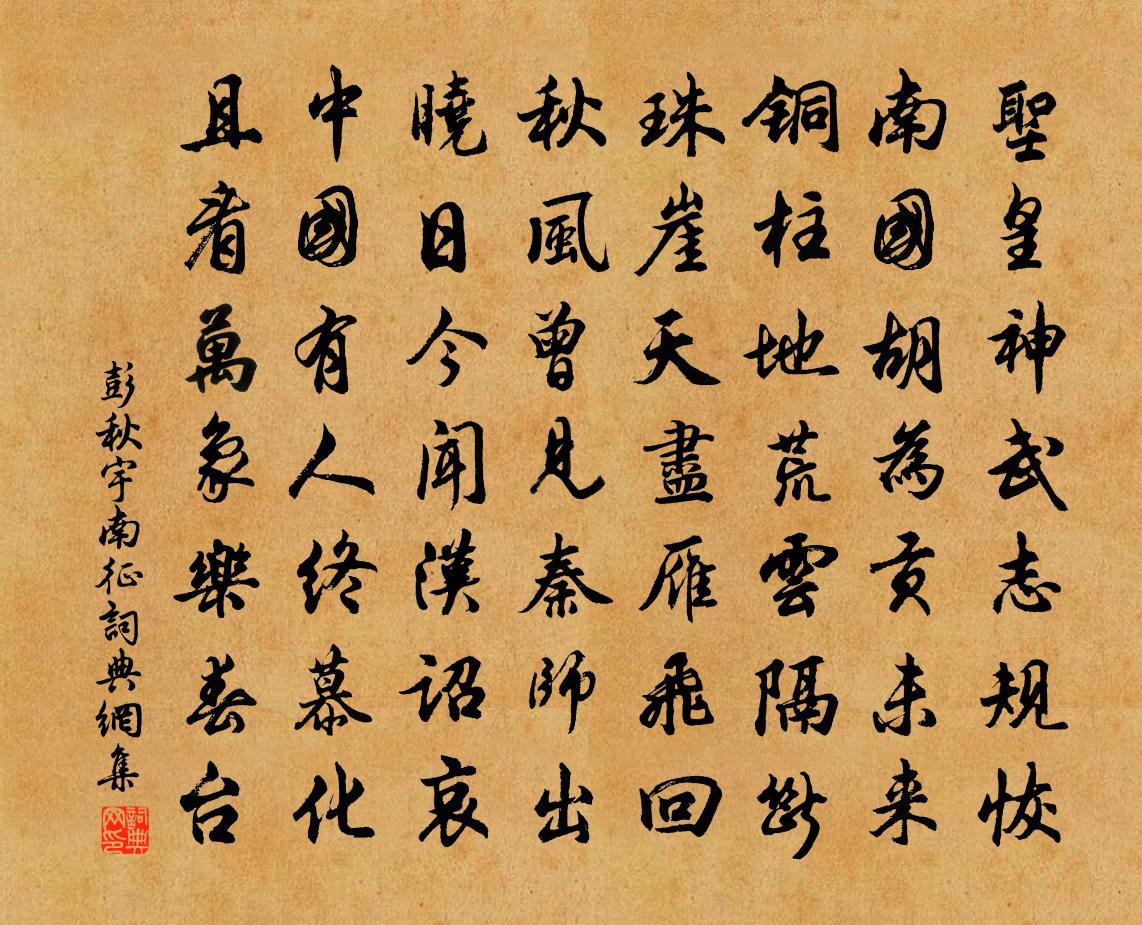 聖皇神武志規恢
南國胡為貢未来
銅柱地荒雲隔斷
珠崖天盡雁飛回
秋風曾見秦師出
曉日今聞漢詔哀
中國有人終慕化
且看萬象樂春台
彭秋宇南征詞典網集
詞典网印